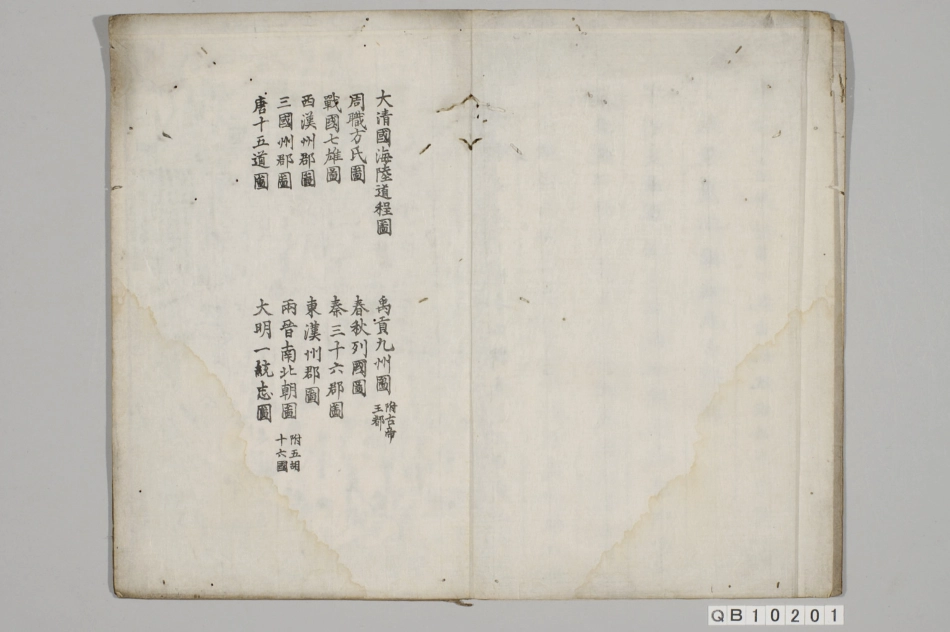 大清國海陸道程圖
禹貢九州圖 附古帝
王都
周職方氏圖
春秋列國圖
戰國七雄圖
秦三十六郡圖
西漢州郡圖
東漢州郡圖
三國州郡圖
兩晉南北朝圖 附五胡
十六國
唐十五道圖
大明一統志圖
QB10201